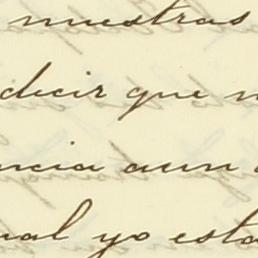 nuestras
decir que n
ncia aun
ual yo esta